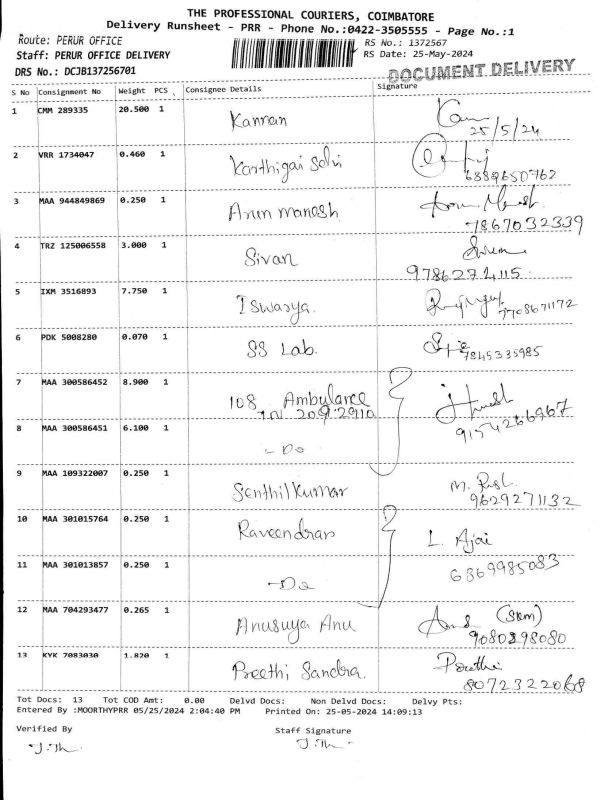 THE PROFESSIONAL COURIERS, COIMBATORE
Delivery Runsheet - PRR - Phone No.:0422-3505555 - Page No.:1
Route: PERUR OFFICE
RS No.: 1372567
Staff: PERUR OFFICE DELIVERY
RS Date: 25-May-2024
DRS No.: DCJB137256701
DOCUMENT DELIVERY
S No Consignment No Weight PCS Consignee Details Signature
1 CMM 289335 20.500 1 Kannan
25/5/24
2 VRR 1734047 0.460 1 Karthigai Selvi
6389650762
3 MAA 944849869 0.250 1 Arun manesh
7867032339
4 TRZ 125006558 3.000 1 Sivan
9786274115
5 IXM 3516893 7.750 1 Iswarya.
7708671172
6 PDK 5008280 0.070 1 SS Lab.
7845335985
7 MAA 300586452 8.900 1 108 Ambulance
TN 20G 2910
9154266967
8 MAA 300586451 6.100 1 - Do
9 MAA 109322007 0.250 1 Senthil Kumar M.
9629271132
10 MAA 301015764 0.250 1 Raveendran L. Ajai
11 MAA 301013857 0.250 1 - Do
6369985083
12 MAA 704293477 0.265 1 Anusuya Anu
9080398080
13 KYK 7083030 1.820 1 Preethi Sandra. Preethi
8072322068
Tot Docs: 13 Tot COD Amt: 0.00 Delvd Docs: Non Delvd Docs: Delvy Pts:
Entered By :MOORTHYPRR 05/25/2024 2:04:40 PM Printed On: 25-05-2024 14:09:13
Verified By Staff Signature